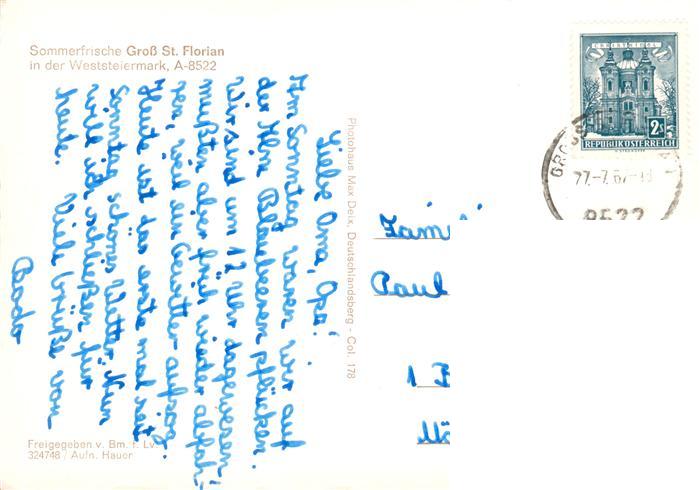 Sommerfrische Groß St. Florian
in der Weststeiermark, A-8522
Liebe Oma, Opa!
Am Sonntag waren wir auf
der Alm Blaubeeren pflücken.
Wir sind um 12 Uhr dagewesen
mußten aber früh wieder abfah-
ren, weil ein Gewitter aufzog.
Heute ist das erste mal seit
Sonntag schönes Wetter. Nun
will ich schließen für
heute. Viele Grüße von
Bodo
Freigegeben v. Bm. f. Lv.
324748 / Aufn. Hauer
Photohaus Max Deix, Deutschlandsberg - Col. 178
CHRISTKINDL
2s
REPUBLIK ÖSTERREICH
8522
Fam
Paul
1